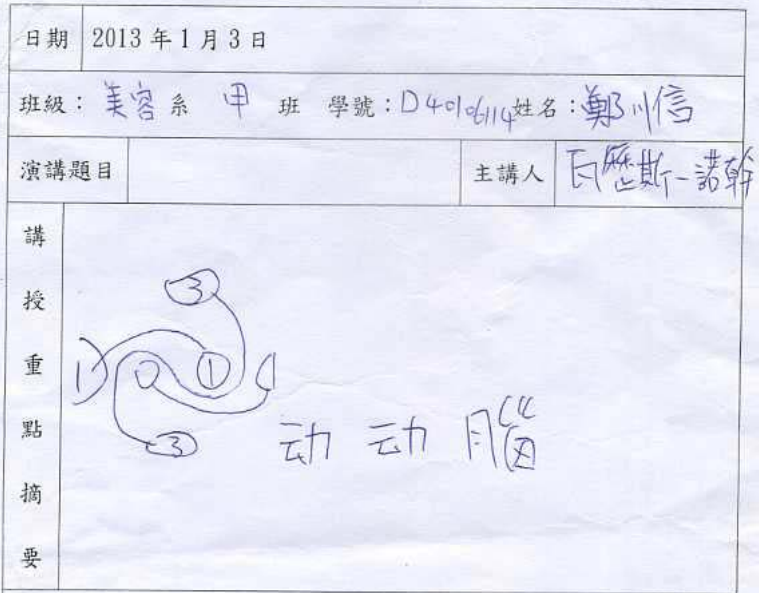 日期 2013年1月3日
班級：美容系 甲 班 學號：D40106114 姓名：鄭川信
演講題目 主講人 瓦歷斯-諾幹
講授重點摘要
3
1 0 1 1
3
动动腦